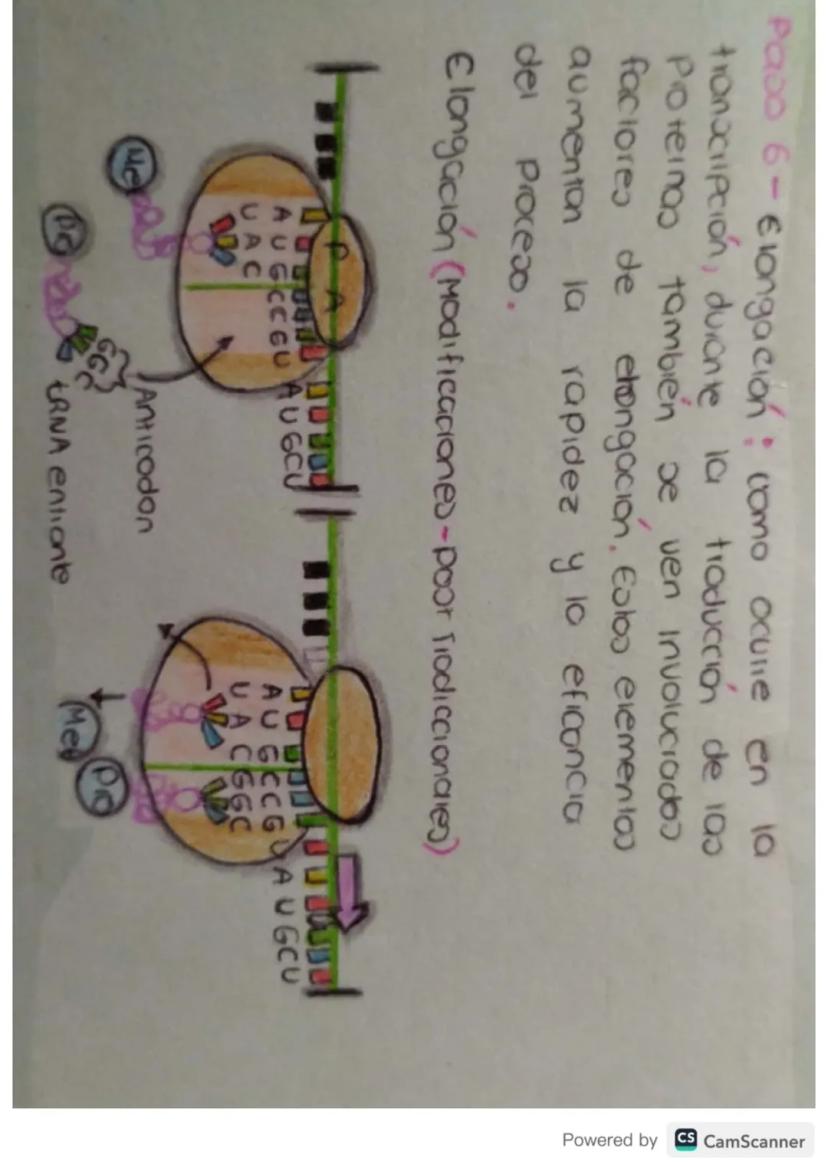 Paso 6 - Elongación: como ocurre en la
transcripción, durante la traducción de las
proteinas también se ven involucrados
factores de elongación. Estos elementos
aumentan la rapidez y la eficancia
del proceso.
Elongación (Modificaciones - poor Tradiccionales)
P A
A U G C C G U A U G C U
U A C
Met
Pro
G G C
Anticodon
tRNA entrante
A U G C C G U A U G C U
U A C G G C
Met Pro
Powered by CS CamScanner